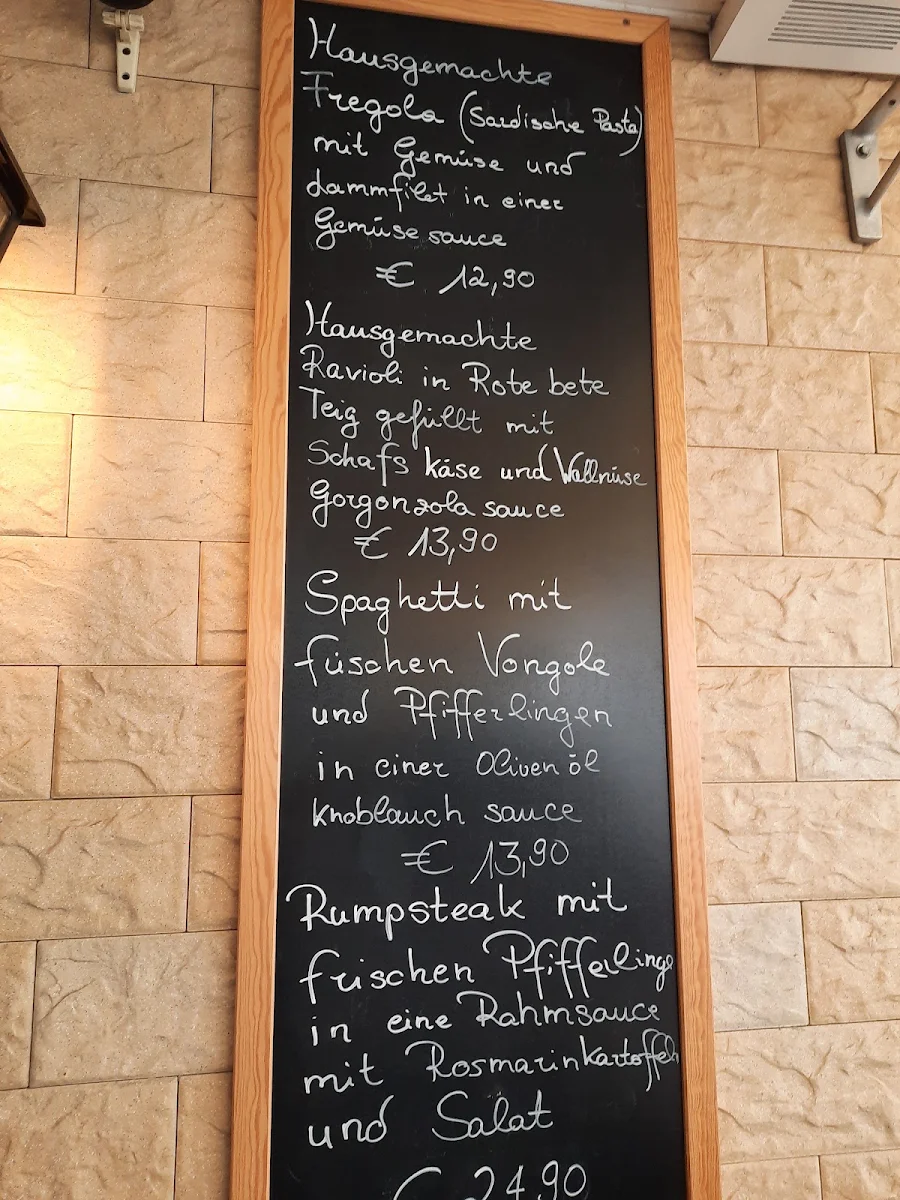 Hausgemachte
Fregola (Sardische Pasta)
mit Gemüse und
dammfilet in einer
Gemüse sauce
€ 12,90
Hausgemachte
Ravioli in Rote bete
Teig gefüllt mit
Schafs käse und Wallnüse
Gorgonzola sauce
€ 13,90
Spaghetti mit
füschen Vongole
und Pfifferlingen
in einer Oliven öl
knoblauch sauce
€ 13,90
Rumpsteak mit
frischen Pfifferlinge
in eine Rahmsauce
mit Rosmarinkartoffeln
und Salat
€ 24,90